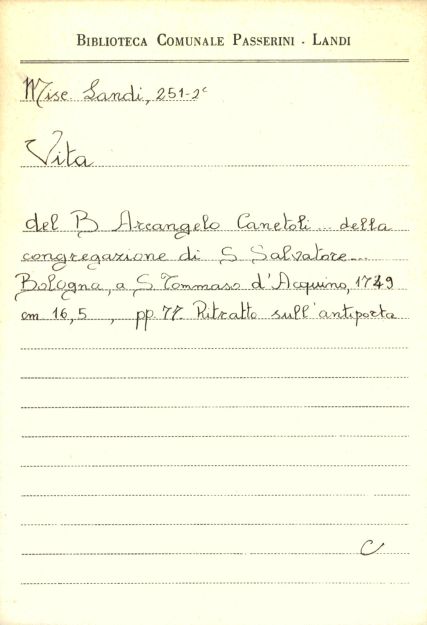 BIBLIOTECA COMUNALE PASSERINI - LANDI
Misc. Landi, 251-2c
Vita
del B Arcangelo Canetoli... della
congregazione di S Salvatore...
Bologna, a S. Tommaso d'Acquino, 1749
cm 16,5 , pp. 77. Ritratto sull'antiporta
C